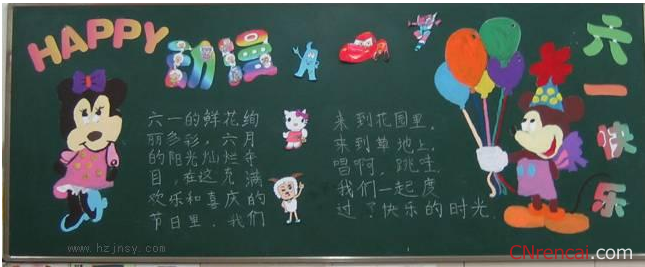 HAPPY
动漫
六一快乐
六一的鲜花绚
丽多彩，六月
的阳光灿烂夺
目，在这充满
欢乐和喜庆的
节日里，我们
来到花园里，
来到草地上，
唱啊，跳哇
我们一起度
过了快乐的时光
www.hzjnsy.com
CNrencai.com